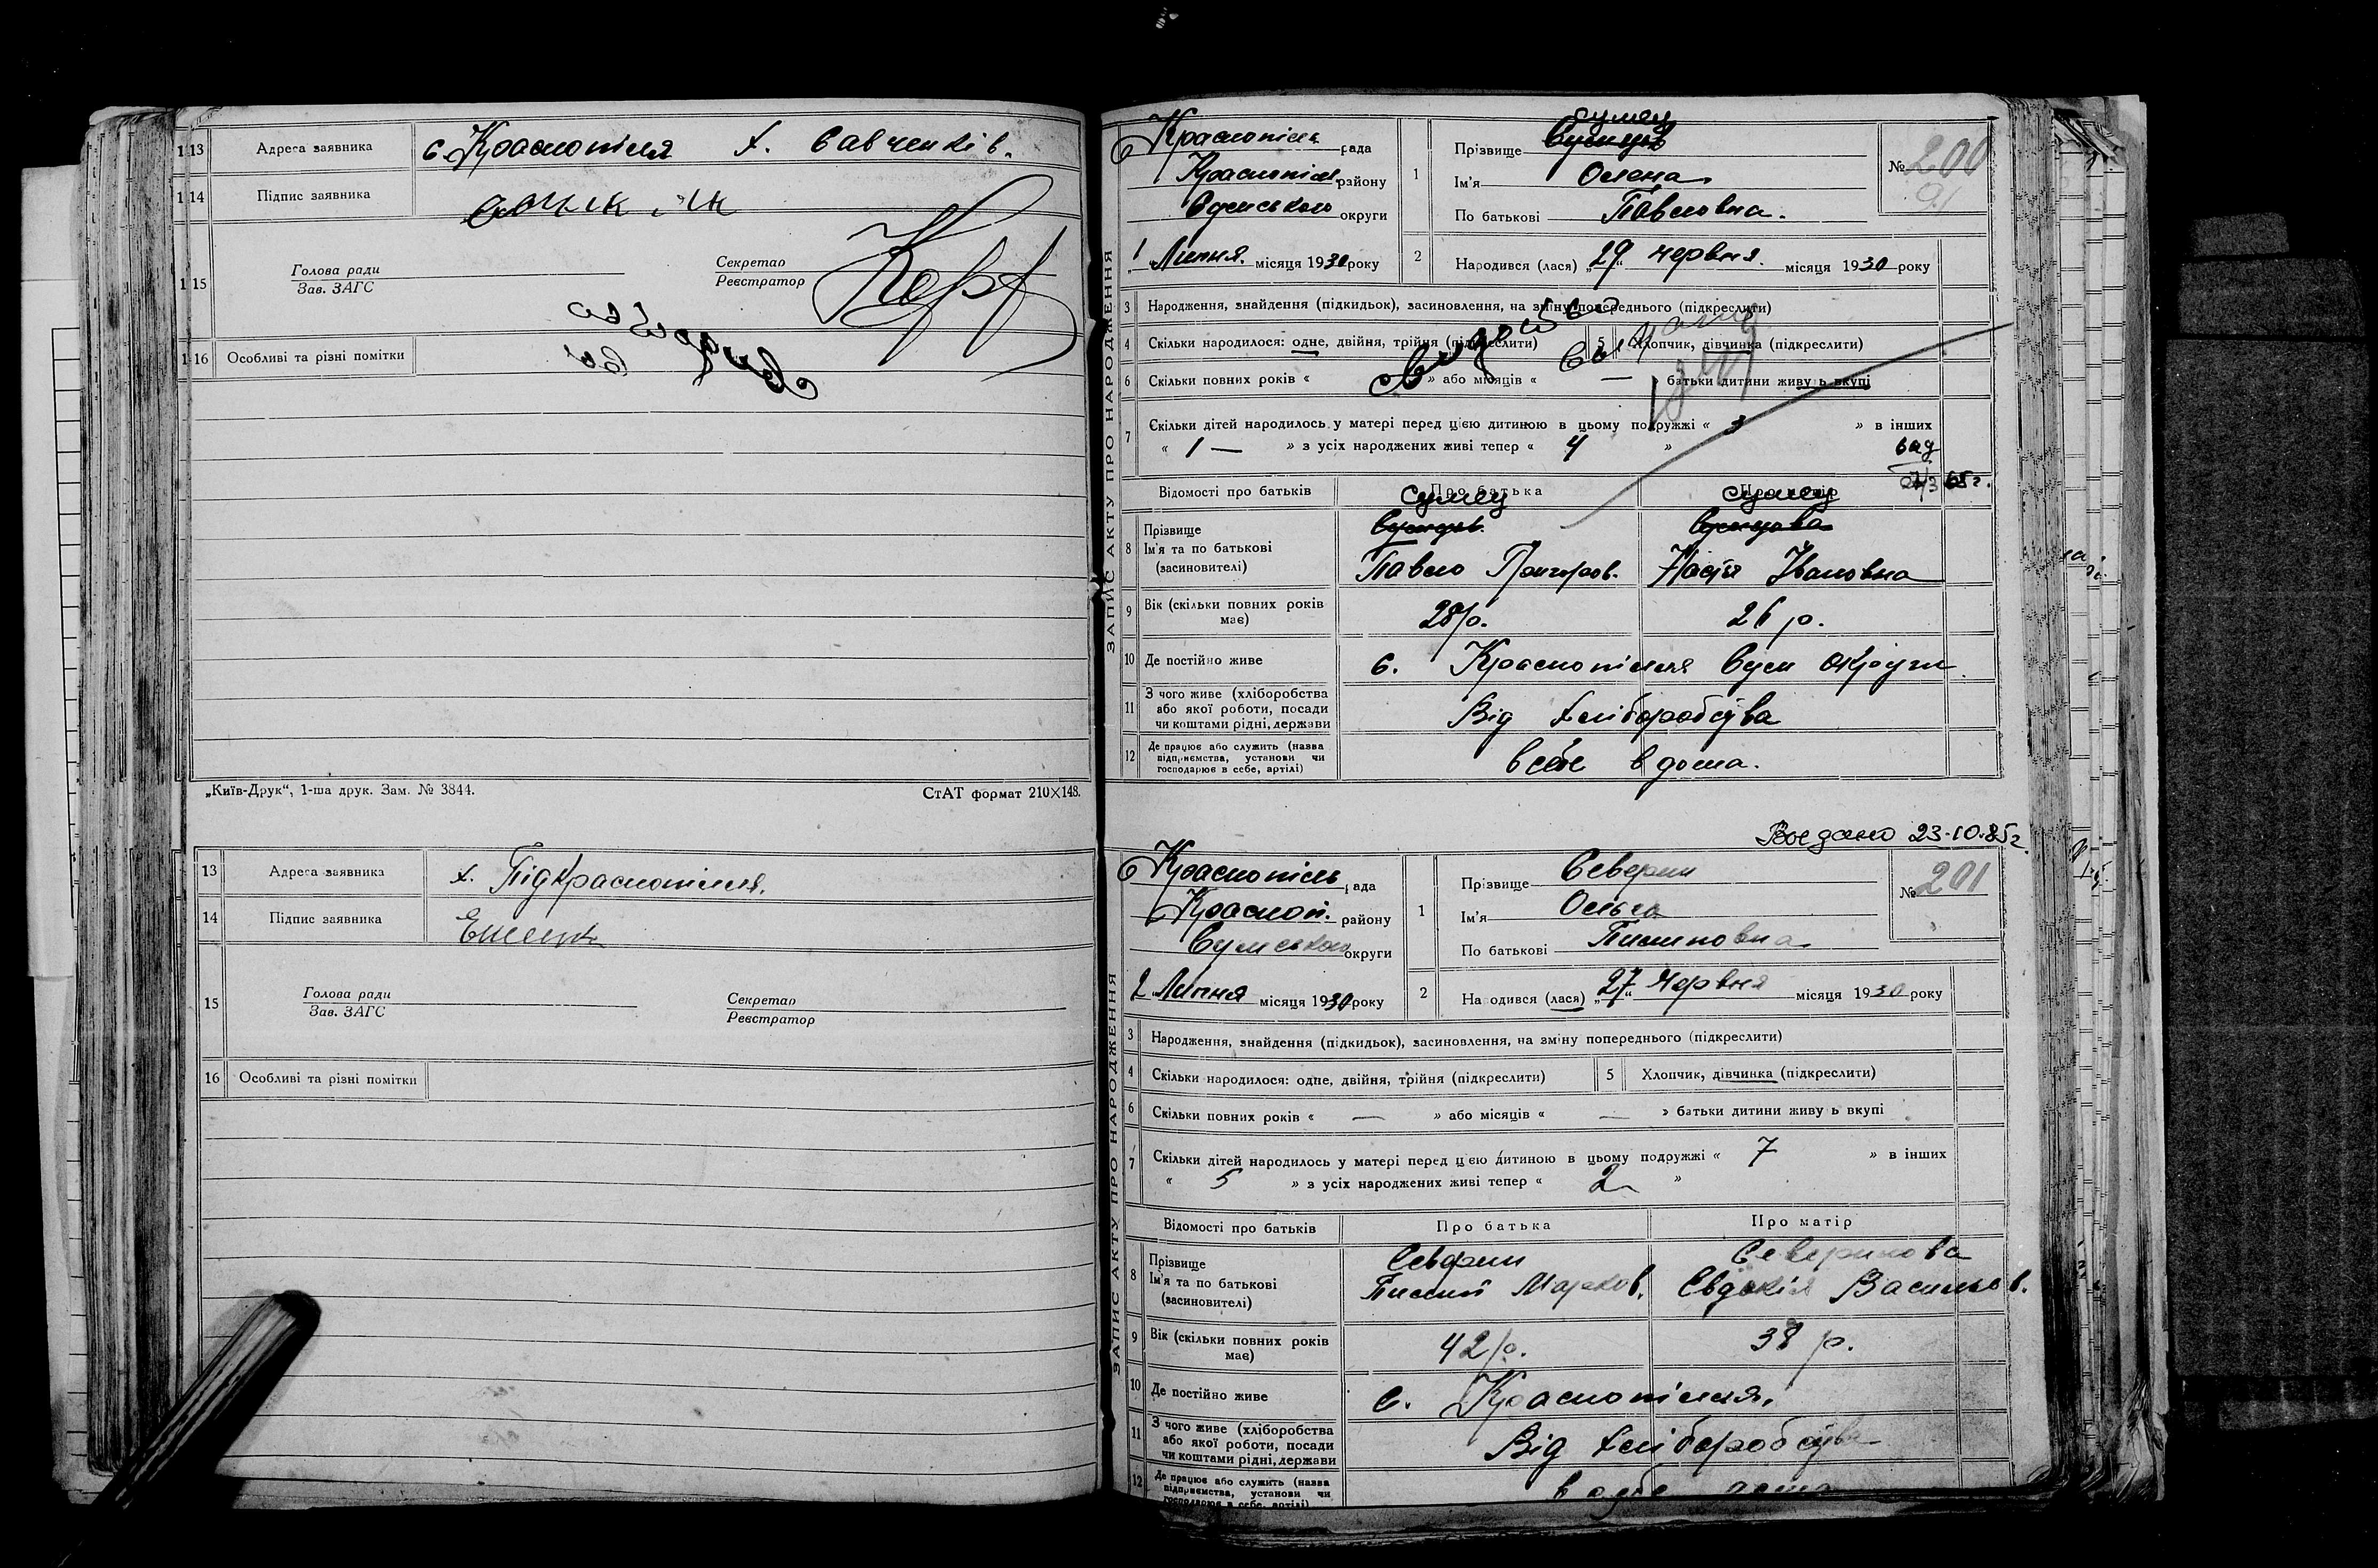 13 Адреса заявника с. Краснопілля х. Савченків.
14 Підпис заявника
15 Голова ради Секретар
Зав. ЗАГС Реєстратор
16 Особливі та різні помітки
„Київ-Друк“, 1-ша друк. Зам. № 3844. СтАТ формат 210×148.
13 Адреса заявника х. Підкраснопілля.
14 Підпис заявника
15 Голова ради Секретар
Зав. ЗАГС Реєстратор
16 Особливі та різні помітки
ЗАПИС АКТУ ПРО НАРОДЖЕННЯ
Краснопіль рада
Краснопіл. району
Сумського округи
1 Липня. місяця 1930 року
Сумец
1 Прізвище Сумцов
Ім'я Олена.
По батькові Павловна.
№ 200
91
2 Народився (лася) „29“ червня. місяця 1930 року
3 Народження, знайдення (підкидьок), засиновлення, на зміну попереднього (підкреслити)
4 Скільки народилося: одне, двійня, трійня (підкреслити) 5 Хлопчик, дівчинка (підкреслити)
6 Скільки повних років « » або місяців « — » батьки дитини живуть вкупі
7 Скільки дітей народилось у матері перед цією дитиною в цьому подружжі « 3 » в інших
« 1 — » з усіх народжених живі тепер « 4 »
Відомості про батьків Про батька Про матір
Сумец Сумец
8 Прізвище Сумцов. Сумцова
Ім'я та по батькові Павло Григоров. Настя Івановна
(засиновителі)
9 Вік (скільки повних років має) 28 р. 26 р.
10 Де постійно живе с. Краснопілля Сум округи
11 З чого живе (хліборобства
або якої роботи, посади Від хліборобства
чи коштами рідні, держави
12 Де працює або служить (назва
підприємства, установи чи в себе вдома.
господарює в себе, артілі)
23-10-85г.
ЗАПИС АКТУ ПРО НАРОДЖЕННЯ
Краснопіль рада
Красноп. району
Сумського округи
2 Липня місяця 1930 року
1 Прізвище Северин
Ім'я Ольга
По батькові Пилиповна.
№ 201
2 Народився (лася) „27“ Червня місяця 1930 року
3 Народження, знайдення (підкидьок), засиновлення, на зміну попереднього (підкреслити)
4 Скільки народилося: одне, двійня, трійня (підкреслити) 5 Хлопчик, дівчинка (підкреслити)
6 Скільки повних років « — » або місяців « — » батьки дитини живуть вкупі
7 Скільки дітей народилось у матері перед цією дитиною в цьому подружжі « 7 » в інших
« 5 » з усіх народжених живі тепер « 2 »
Відомості про батьків Про батька Про матір
8 Прізвище Северин Северинова
Ім'я та по батькові Пилип Марков. Євдокія Васильов.
(засиновителі)
9 Вік (скільки повних років має) 42 р. 38 р.
10 Де постійно живе с. Краснопілля.
11 З чого живе (хліборобства
або якої роботи, посади Від хліборобства
чи коштами рідні, держави
12 Де працює або служить (назва
підприємства, установи чи в себе дома
господарює в себе, артілі)